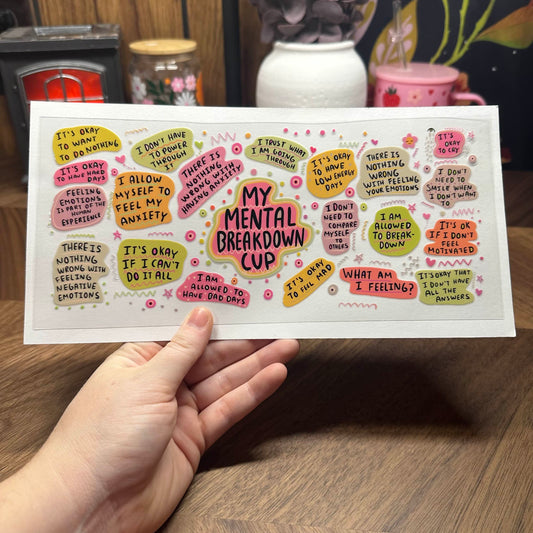 IT'S OKAY
TO WANT
TO DO NOTHING
I DON'T HAVE
TO POWER
THROUGH
I TRUST WHAT
I AM GOING
THROUGH
IT'S OKAY
TO CRY
IT'S OKAY
TO HAVE HARD
DAYS
THERE IS
NOTHING
WRONG WITH
HAVING ANXIETY
IT'S OKAY
TO HAVE
LOW ENERGY
DAYS
THERE IS
NOTHING
WRONG
WITH FEELING
YOUR EMOTIONS
I DON'T
NEED TO
SMILE WHEN
I DON'T WANT
TO
FEELING
EMOTIONS
IS PART OF THE
HUMAN
EXPERIENCE
I ALLOW
MYSELF TO
FEEL MY
ANXIETY
MY
MENTAL
BREAKDOWN
CUP
I DON'T
NEED TO
COMPARE
MYSELF
TO
OTHERS
I AM
ALLOWED
TO BREAK-
DOWN
IT'S OK
IF I DON'T
FEEL
MOTIVATED
THERE IS
NOTHING
WRONG WITH
FEELING
NEGATIVE
EMOTIONS
IT'S OKAY
IF I CAN'T
DO IT ALL
I AM
ALLOWED TO
HAVE BAD DAYS
IT'S OKAY
TO FEEL MAD
WHAT AM
I FEELING?
IT'S OKAY THAT
I DON'T HAVE
ALL THE
ANSWERS